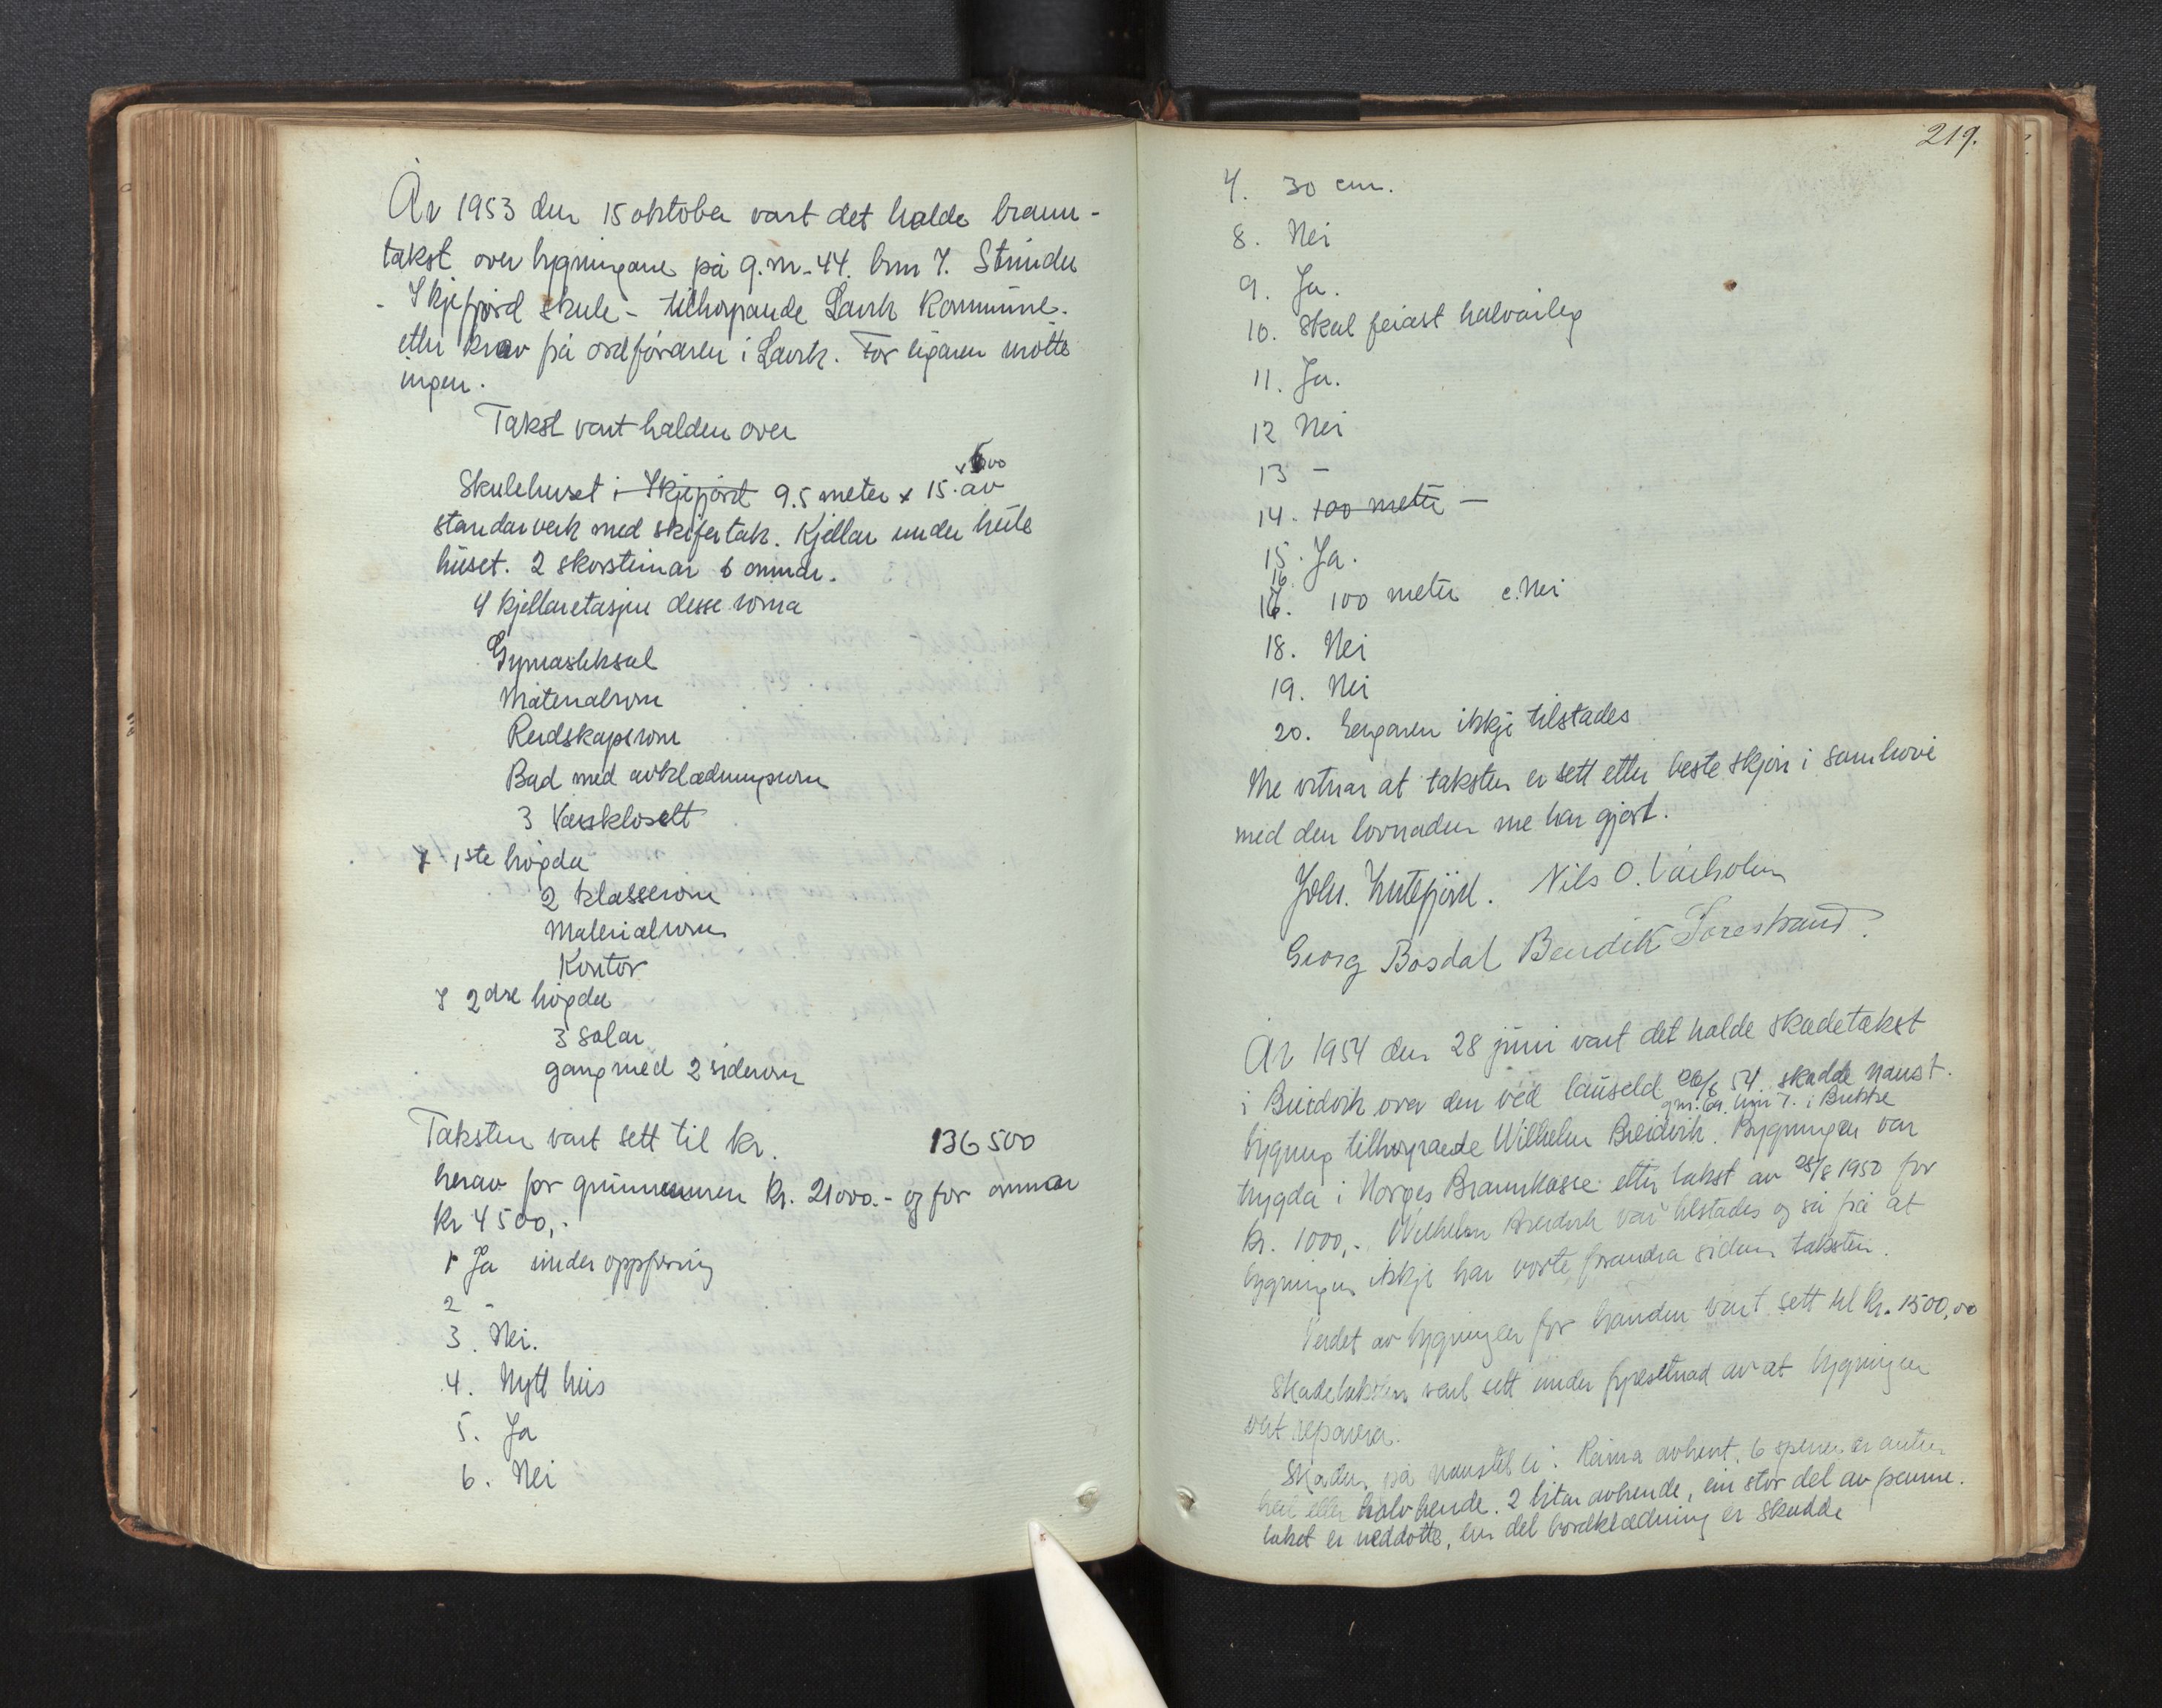 År 1953 den 15 oktober vart det halde brann-
takst over bygningane på g.nr. 44. bnr 7. Strindu
- Skjefjord skule - tilhøyrande Lavik Kommune.
etter krav frå ordføraren i Lavik. For eigaren møtte
ingen.
Takst vart halden over
Skulehuset i Skjefjord 9.5 meter x 15. av
standarverk med skifertak. Kjellar under heile
huset. 2 skorsteinar 6 omnar.
I kjellaretasjen desse roma
Gymastiksal
Materialrom
Reidskapsrom
Bad med avklædningsrom
3 Vassklosett
I 1ste høgda
2 klasserom
Materialrom
Kontor
I 2dre høgda
3 Salar
gang med 2 siderom
Taksten vart sett til kr. 136 500
herav for grunnmuren kr. 21000.- og for omnar
kr 4500,-
1 Ja under oppføring
2 -
3. Nei.
4. Nytt hus
5. Ja
6. Nei
219.
7. 30 cm.
8. Nei
9. Ja.
10. Skal feiast halvårleg
11. Ja.
12 Nei
13 -
14. 100 meter -
15. Ja.
16. 100 meter c. Nei
18. Nei
19. Nei
20. Eigaren ikkje tilstades
Me vitnar at taksten er sett etter beste skjøn i samhøve
med den lovnaden me har gjort.
Joh. Nils O. Vårholm
Georg Bosdal Bendik Torestrand.
År 1954 den 28 juni vart det halde skadetakst
i Breidvik over den ved lauseld 26/6 54. skadde naust-
gnr. 69. bnr 7. i Brekke
bygning tilhøyrande Wilhelm Breidvik. Bygningen var
trygda i Norges Brannkasse etter takst av 25/8 1950 for
kr. 1000,- Wilhelm Breidvik var tilstades og sa frå at
bygningen ikkje har vorte forandra sidan taksten.
Verdet av bygningen for branden vart sett til kr. 1500,00
Skadetaksten vart sett under fyresetnad av at bygningen
vert reparera.
Skaden på naustet er: Råma avbrent, 6 sperrer er anten
heil eller halvbrende. 2 bitar avbrende, ein stor del av panne-
taket er neddotte, ein del bordklædning er skadde